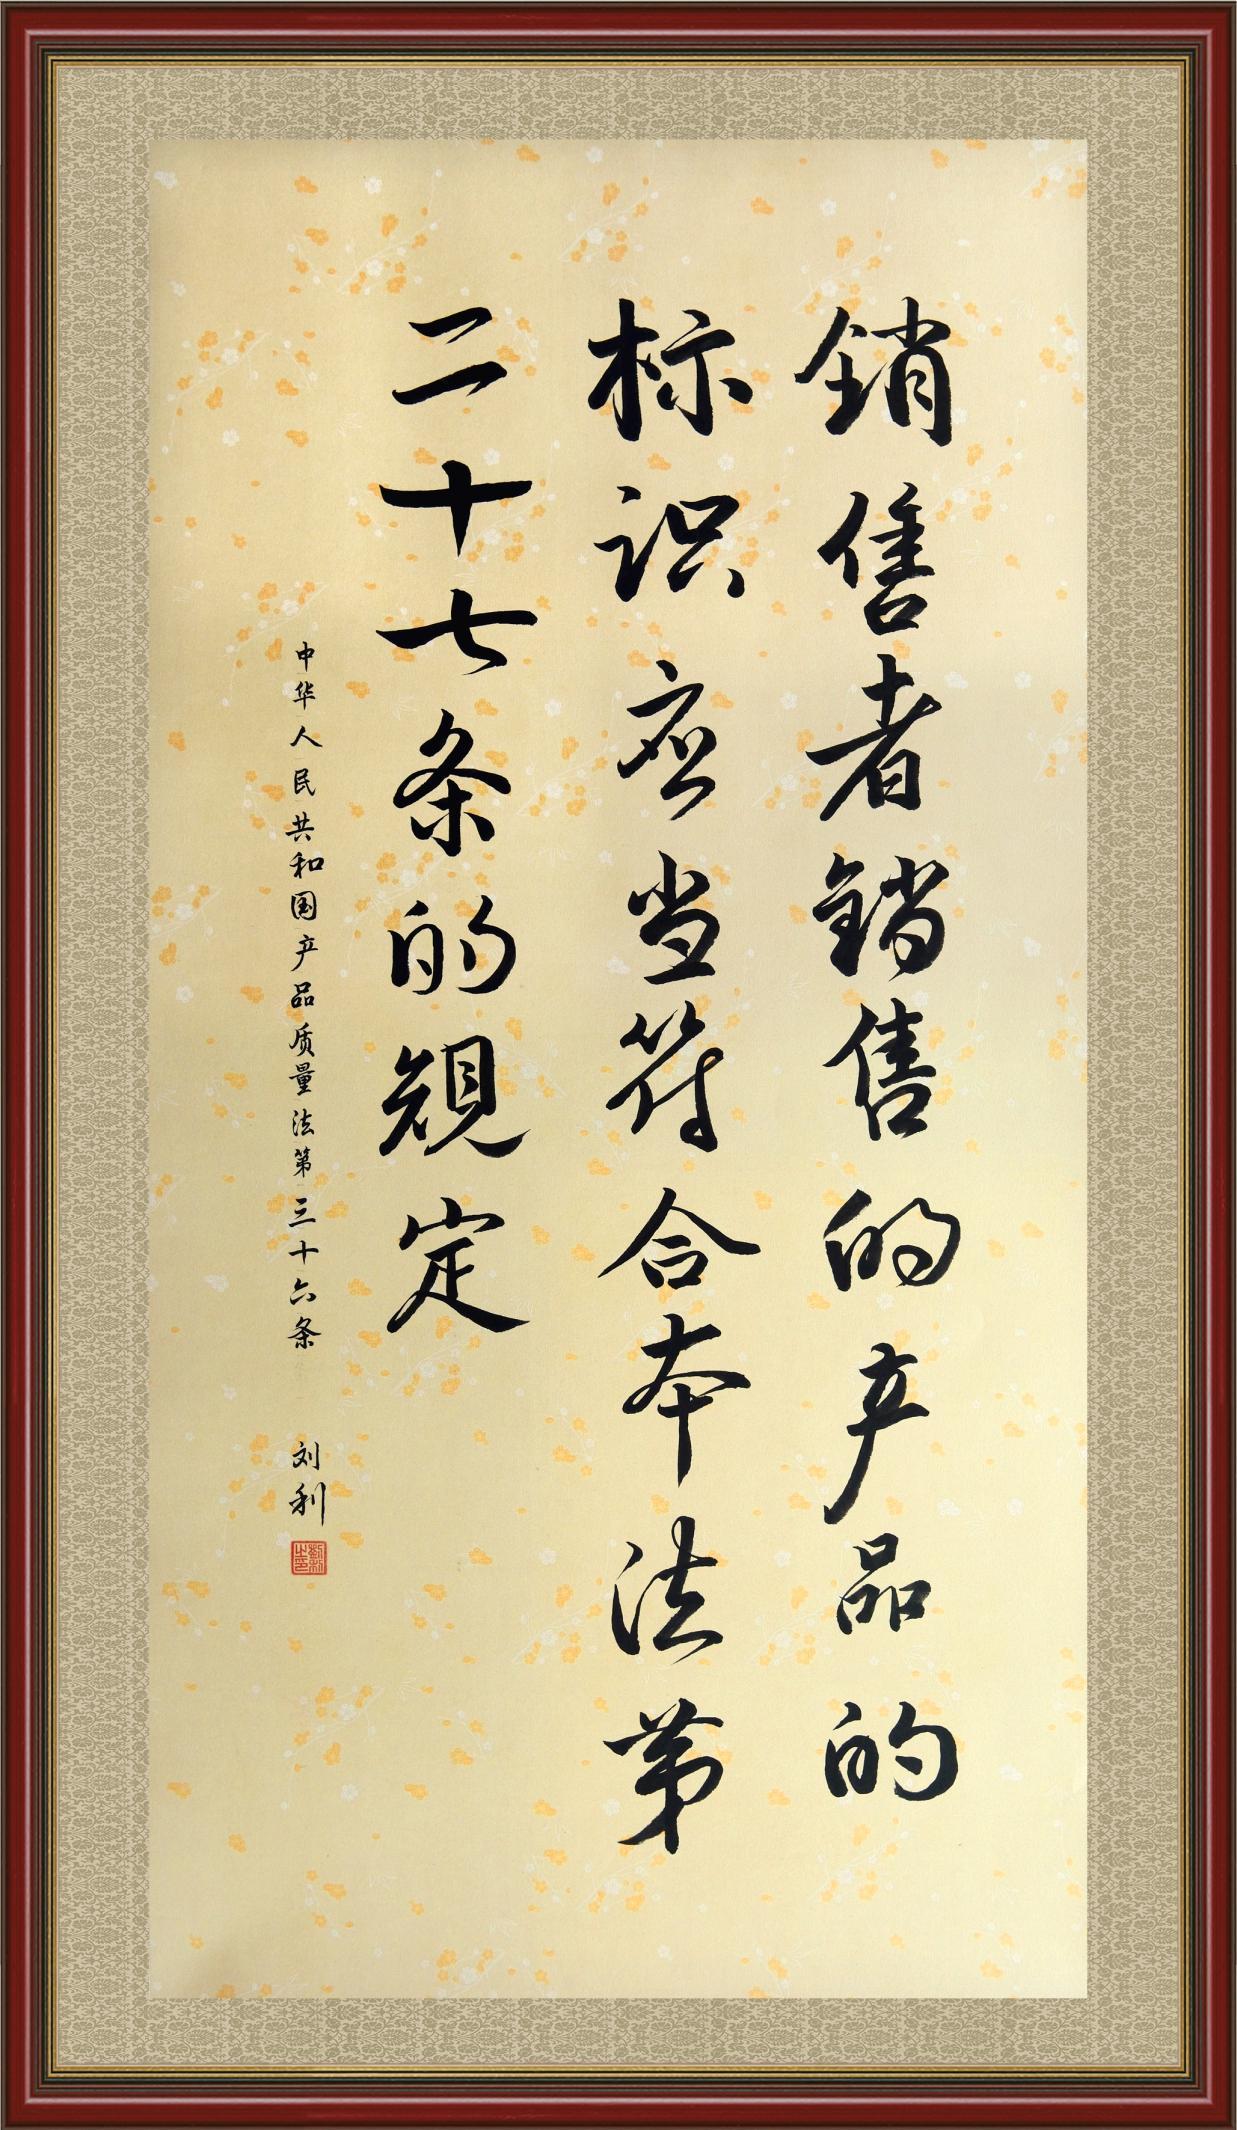 销售者销售的产品的
标识应当符合本法第
二十七条的规定
中华人民共和国产品质量法第三十六条 刘利